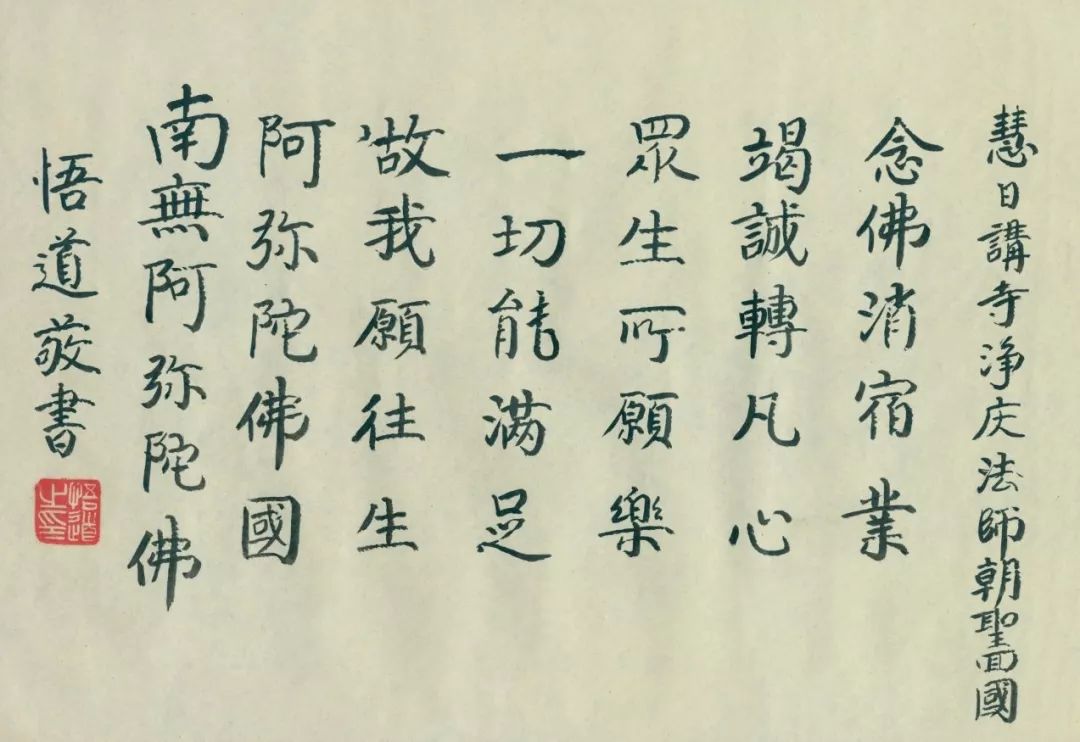 慧日講寺浄庆法師朝聖囬國
念佛消宿業
竭誠轉凡心
眾生所願樂
一切能满足
做我願往生
阿弥陀佛國
南無阿弥陀佛
悟道敬書
悟道之印